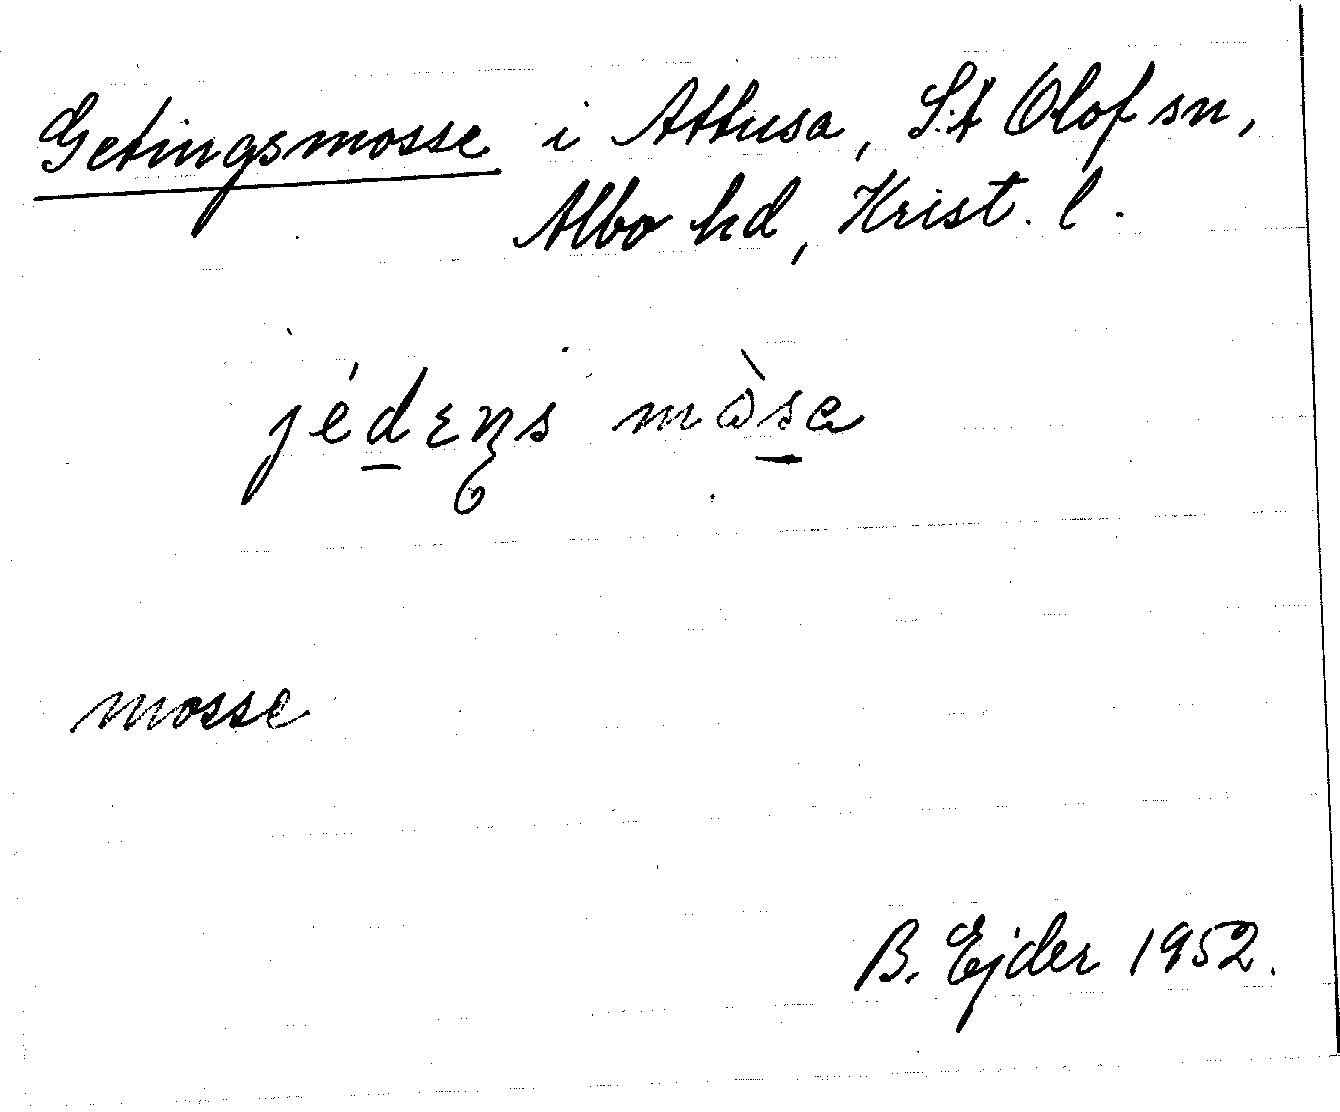 Getingsmosse i Attusa, S:t Olof sn,
Albo hd, Krist. l.
jédɛŋs mòsa
mosse
B. Ejder 1952.